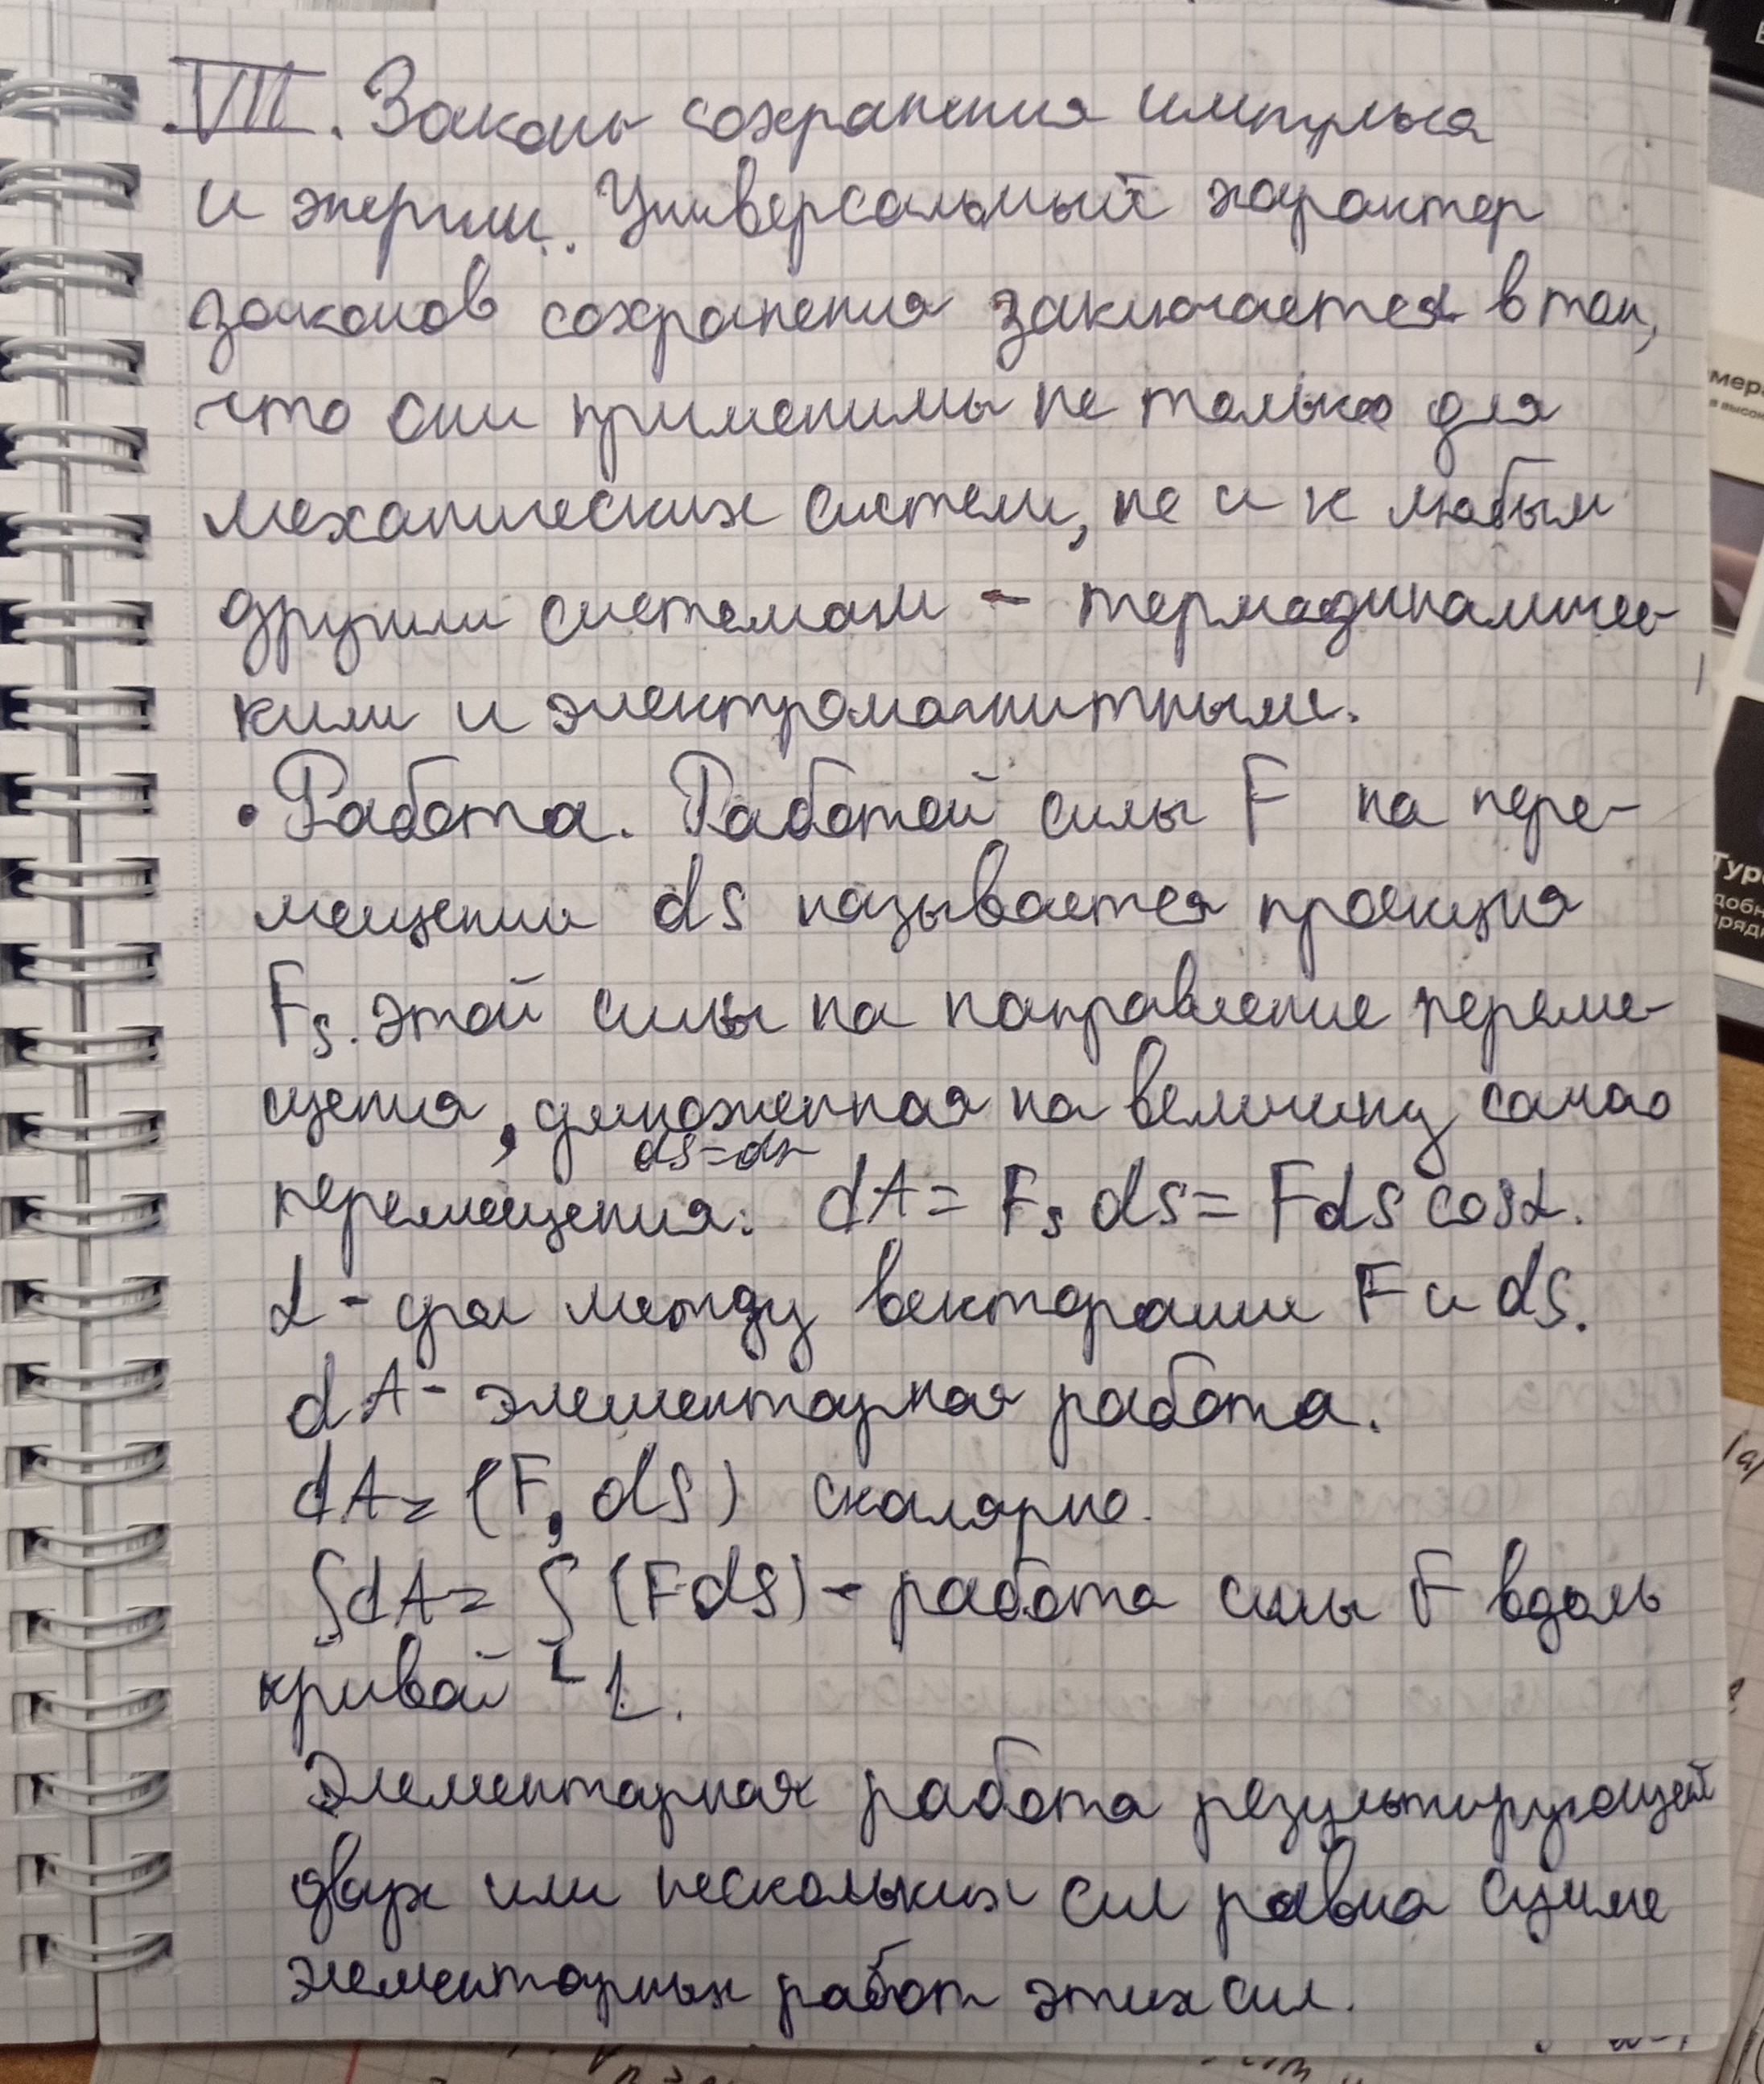 VII. Законы сохранения импульса
и энергии. Универсальный характер
законов сохранения заключается в том,
что они применимы не только для
механических систем, но и к любым
другим системам - термодинамичес-
кими и электромагнитным.
• Работа. Работой силы F на пере-
мещении ds называется проекция
Fs этой силы на направление переме-
щения, умноженная на величину самого
ds=dr
перемещения: dA = Fs ds = Fds cosα.
α - угол между векторами F и ds.
dA - элементарная работа.
dA = (F, ds) скалярно.
∫dA = ∫ (Fds) - работа силы F вдоль
L
кривой L.
Элементарная работа результирующей
двух или нескольких сил равна сумме
элементарных работ этих сил.